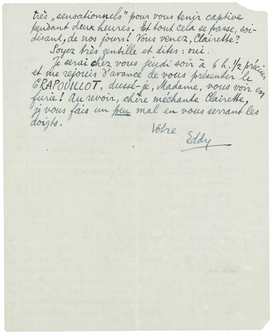 très „sensationnels" pour vous tenir captive
pendant deux heures. Et tout cela se passe, soi-
disant, de nos jours! Vous venez, Clairette?
Soyez très gentille et dites: oui.
Je serai chez vous jeudi soir à 6 h. 1/2 précises
et me réjouis d'avance de vous présenter le
CRAPOUILLOT, dussé-je, Madame, vous voir en
furie! Au revoir, chère méchante Clairette,
je vous fais un peu mal en vous serrant les
doigts.
Votre
Eddy